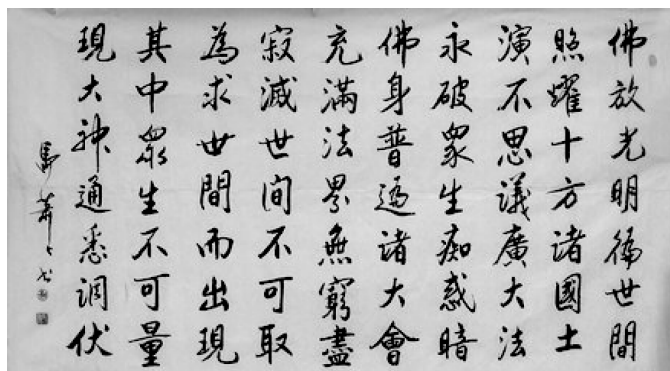 佛放光明徧世間
照耀十方諸國土
演不思議廣大法
永破眾生痴惑暗
佛身普遍諸大會
充滿法界無窮盡
寂滅世间不可取
為求世間而出現
其中眾生不可量
現大神通悉調伏
馬蕭蕭书